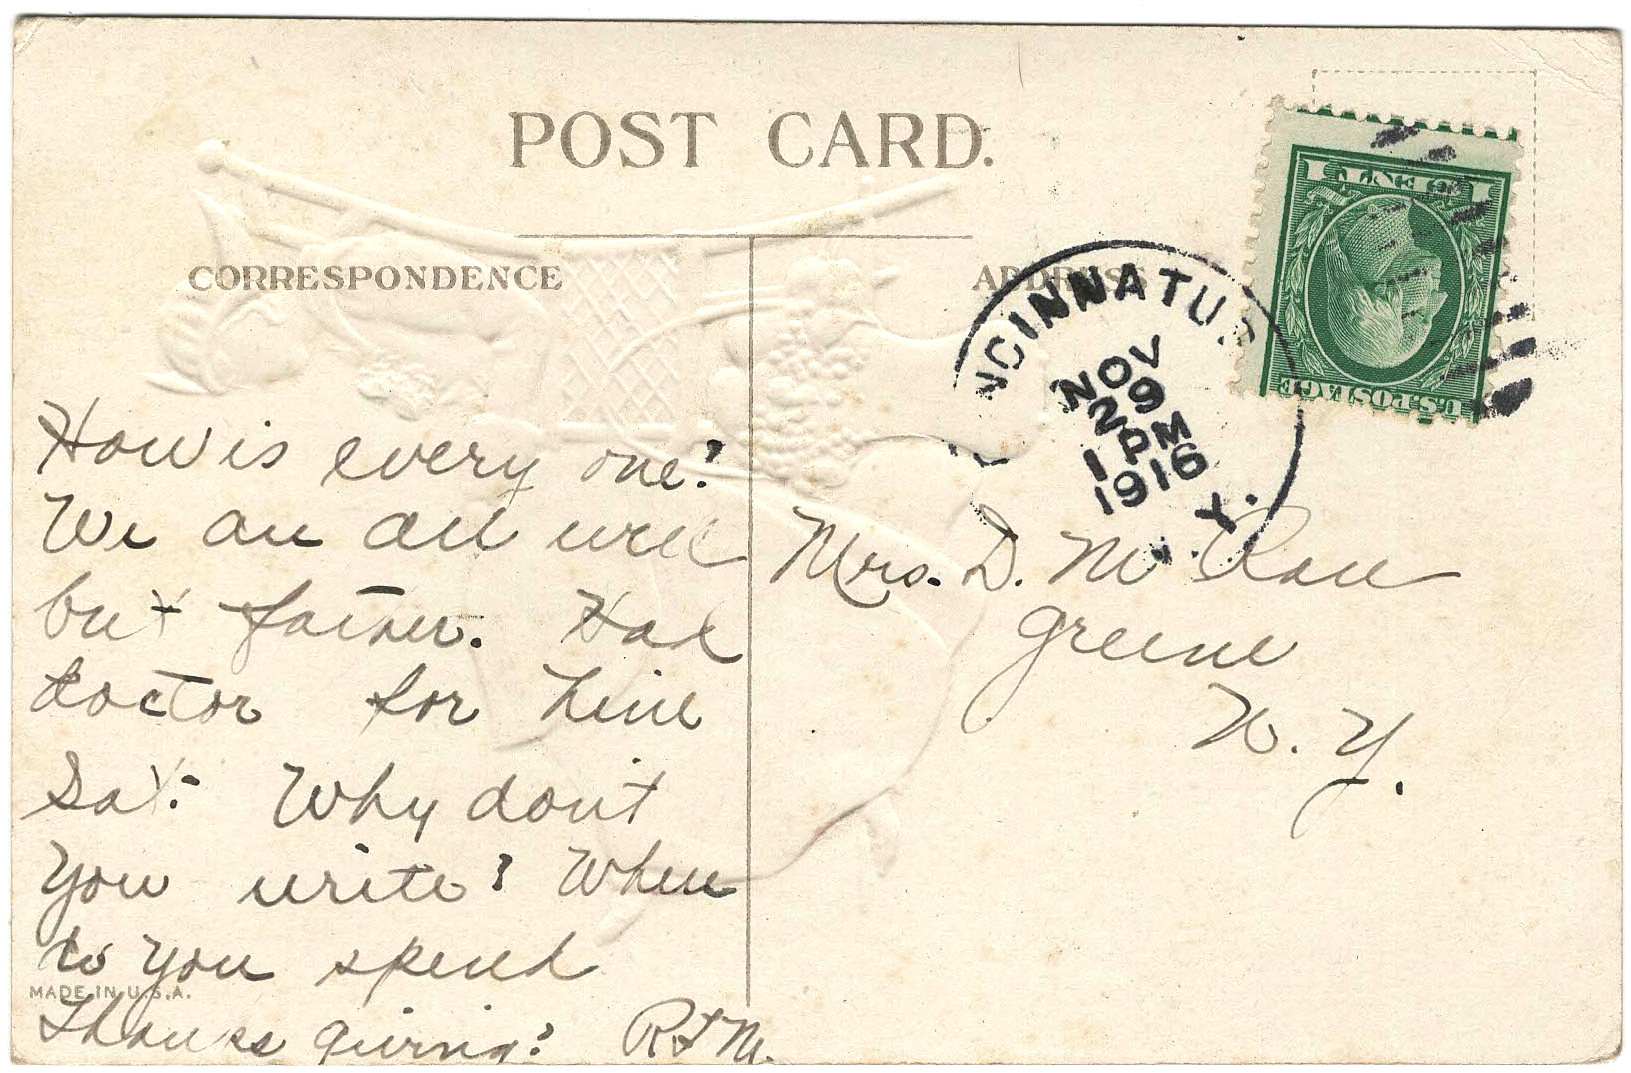 POST CARD.
CORRESPONDENCE
ADDRESS
NCINNATUS
NOV
29
1 PM
1916
N. Y.
ONE
U.S. POSTAGE
How is every one?
We are all well
but father. Had
doctor for him
Sat. Why don't
you write? Where
do you spend
Thanksgiving? R
Mrs. D. Mc
Greene
N. Y.
MADE IN U.S.A.